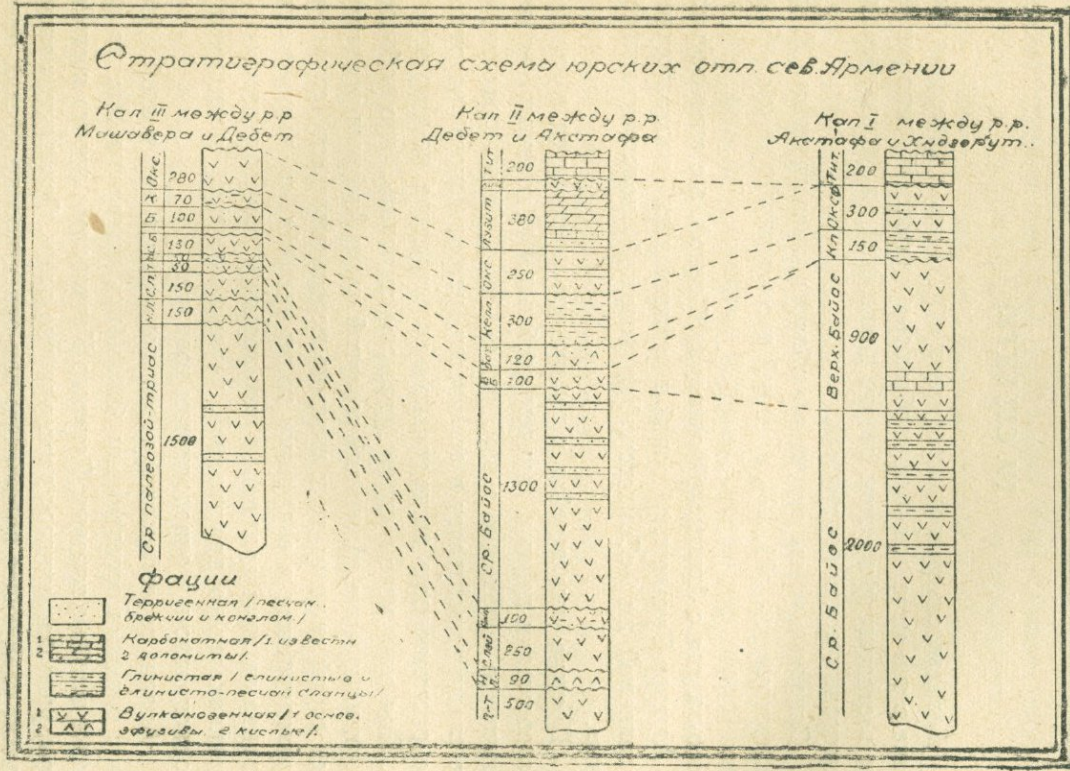 Стратиграфическая схема юрских отл. сев. Армении
Кол III между р.р.
Машавера и Дебет
Окс.
280
К
70
Б
100
Б
130
50
С.Л.
150
Н.Л.
150
Ср палеозой-триас
1500
Кол II между р.р.
Дебет и Акстафа
Тит
200
Лузит
380
Окс
250
Келл
300
Бат
120
В Б
100
Ср. Байос
1300
100
С.Лей
250
Н
90
500
Кол I между р.р.
Акстафа и Хндзорут.
Тит.
200
Оксф
300
Кл
150
Верх. Байос
900
Ср. Байос
2000
фации
Терригенная /песчан.
брекчии и конглом./
1
2
Карбонатная /1 известн
2 доломиты/.
Глинистая /глинистые и
глинисто-песчан сланцы/
1
2
Вулканогенная /1 основ.
эфузивы. 2 кислые/.